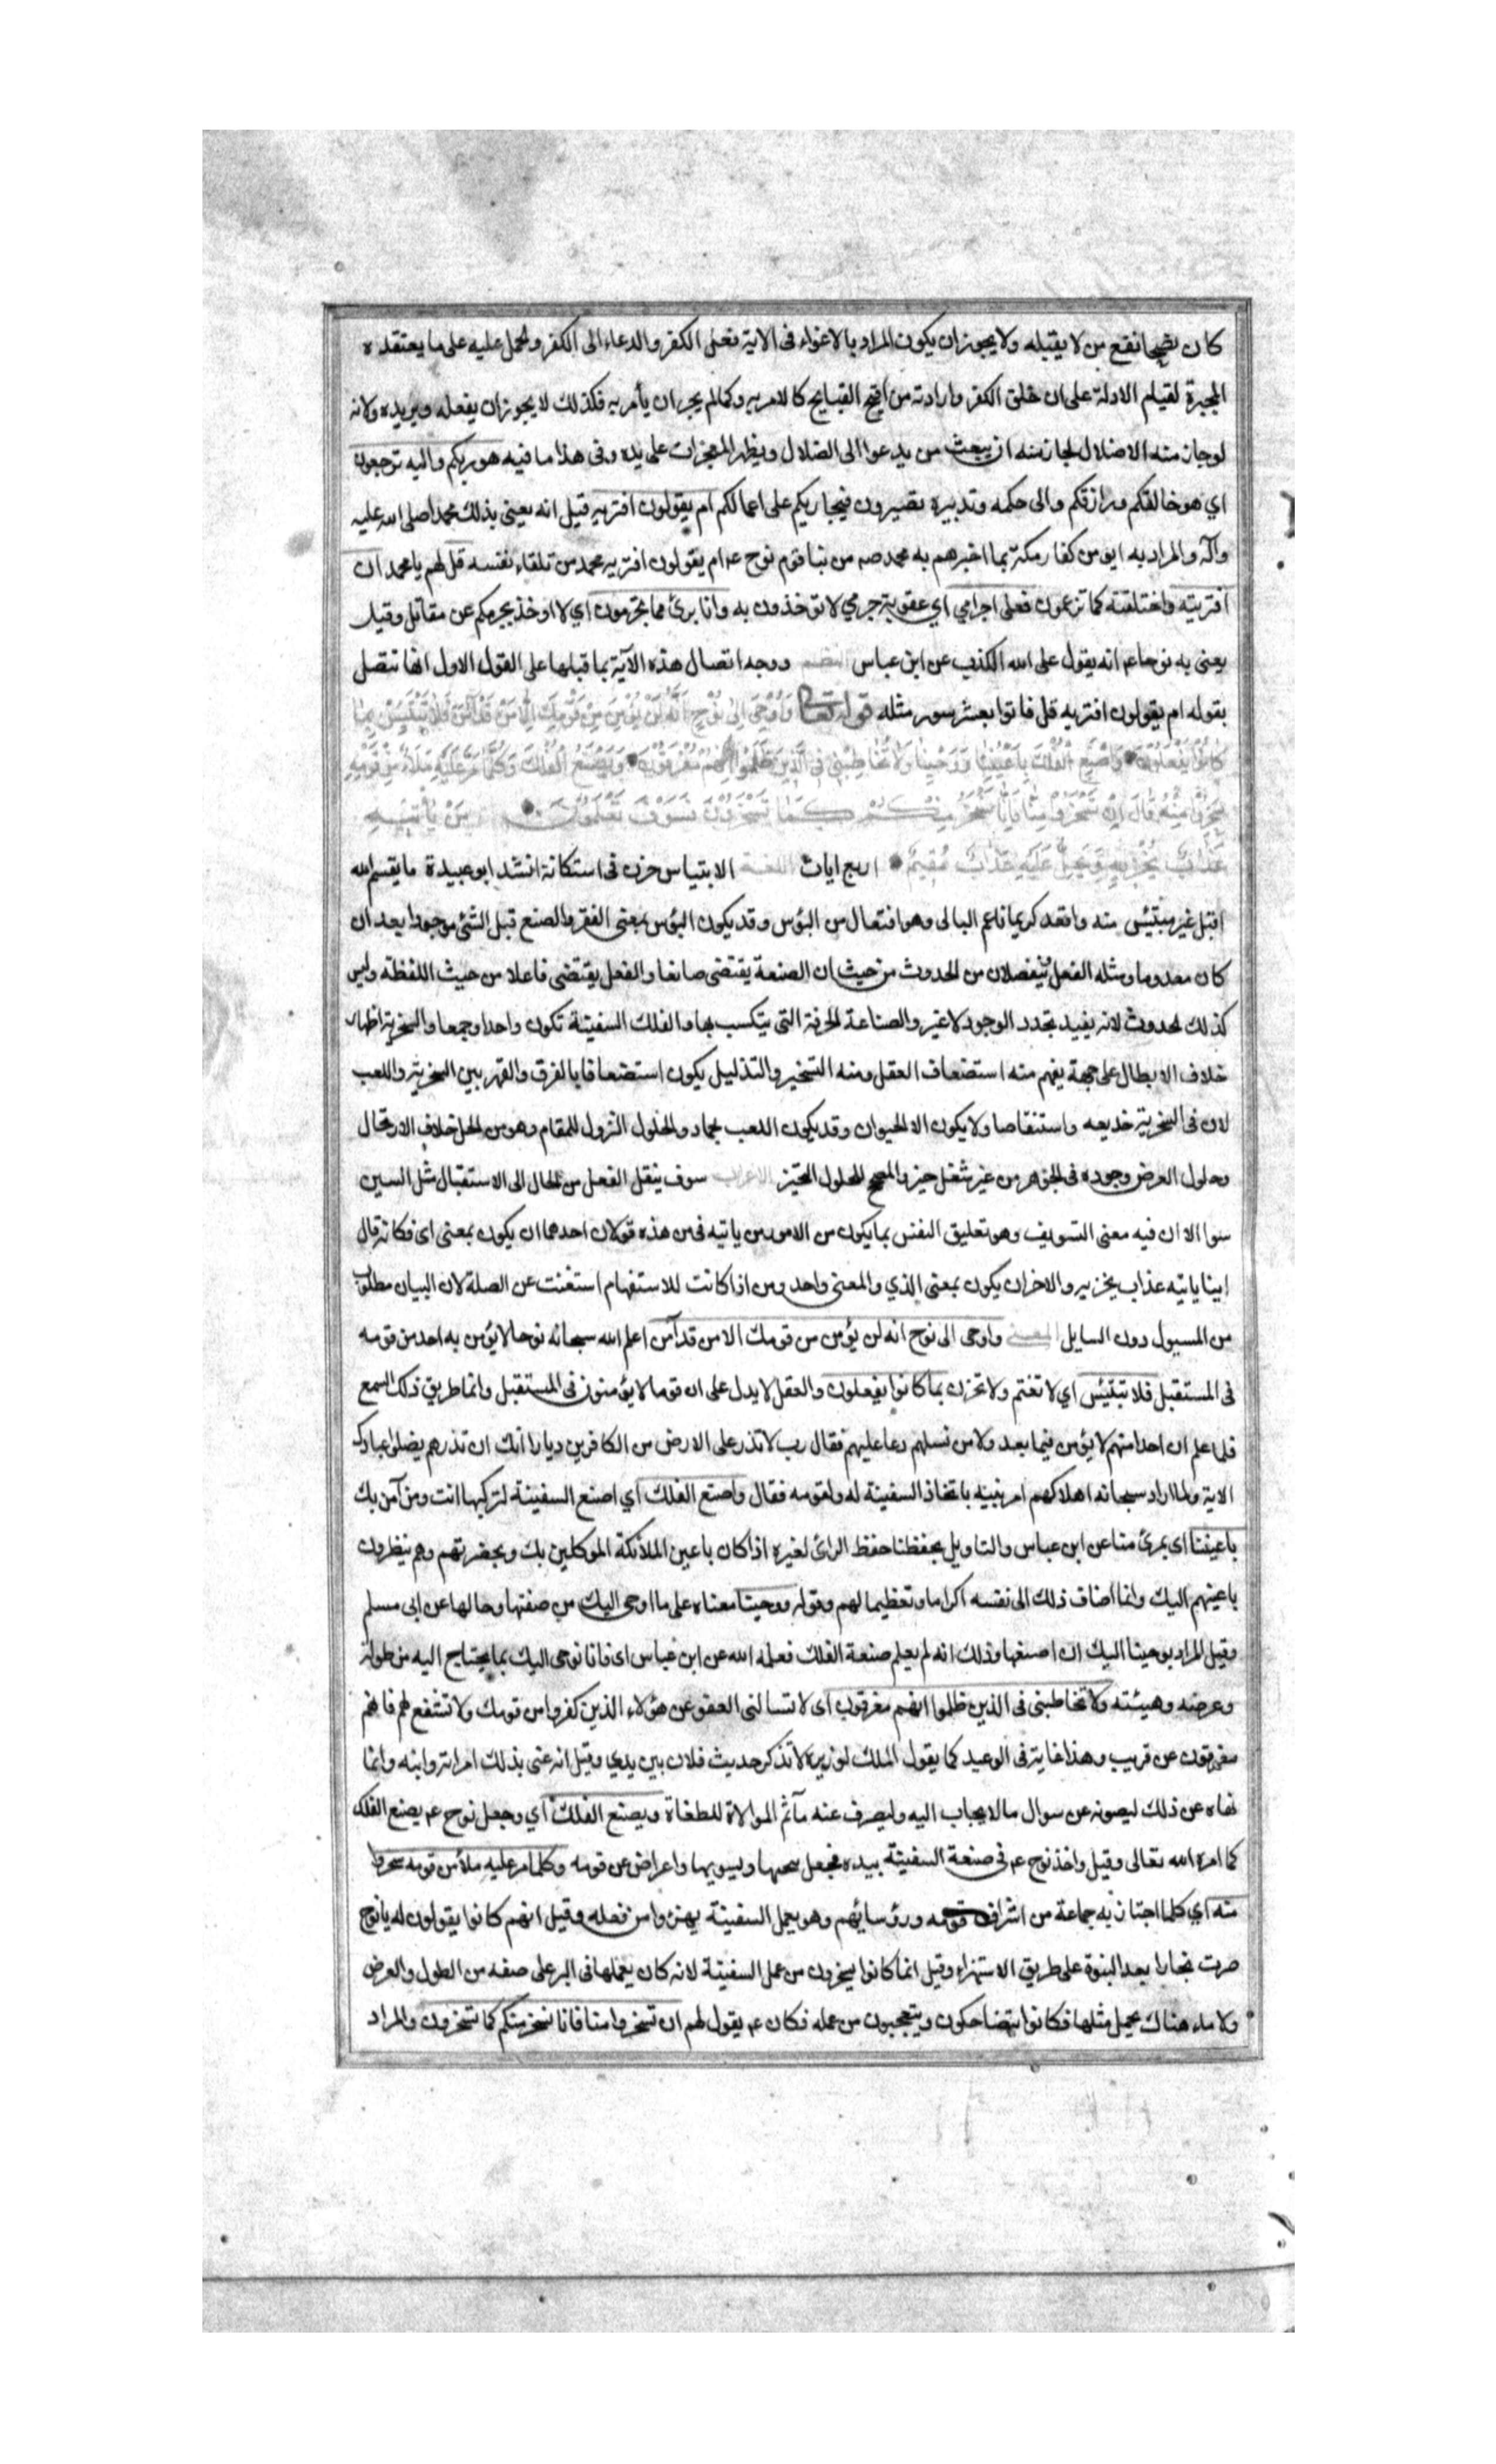 كان نصحا نفع من لا يقبله ولا يجوز ان يكون المراد بالاغواء فى الاية فعل الكفر والدعاء الى الكفر والحمل عليه على ما يعتقده
المجبرة لقيام الادلة على ان خلق الكفر وارادته من اقبح القبايح كالامر به وكما لم يجز ان يأمر به فكذلك لا يجوز ان يفعله ويريده ولانه
لو جاز منه الاضلال لجاز منه ان يبعث من يدعوا الى الضلال ويظهر المعجزات على يده وفى هذا ما فيه هو ربكم واليه ترجعون
اي هو خالقكم ورازقكم والى حكمه وتدبيره تصيرون فيجازيكم على اعمالكم ام يقولون افتريه قيل انه يعنى بذلك محمدا صلى الله عليه
وآله والمراد به ايؤمن كفار مكة بما اخبرهم به محمد صه من نبا قوم نوح عه ام يقولون افتريه محمد من تلقاء نفسه قل لهم يا محمد ان
افتريته واختلقته كما تزعمون فعلى اجرامي اي عقوبة جرمي لا تؤخذون به وانا برئ مما تجرمون اي لا اوخذ بجرمكم عن مقاتل وقيل
يعنى به نوحا عه انه يقول على الله الكذب عن ابن عباس النظم ووجه اتصال هذه الآية بما قبلها على القول الاول انها تتصل
بقوله ام يقولون افتريه قل فاتوا بعشر سور مثله قوله تعالى وَاُوْحِىَ اِلى نُوْحٍ اَنَّهُ لَنْ يُؤْمِنَ مِنْ قَوْمِكَ اِلَّا مَنْ قَدْ آمَنَ فَلَا تَبْتَئِسْ بِمَا
كَانُوا يَفْعَلُونَ وَاصْنَعِ الْفُلْكَ بِاَعْيُنِنَا وَوَحْيِنَا وَلَا تُخَاطِبْنِى فِى الَّذِينَ ظَلَمُوا اِنَّهُمْ مُغْرَقُونَ وَيَصْنَعُ الْفُلْكَ وَكُلَّمَا مَرَّ عَلَيْهِ مَلَاءٌ مِنْ قَوْمِهِ
سَخِرُوْا مِنْهُ قَالَ اِنْ تَسْخَرُوا مِنَّا فَاِنَّا نَسْخَرُ مِنْكُمْ كَمَا تَسْخَرُوْنَ فَسَوْفَ تَعْلَمُونَ مَنْ يَأْتِيْهِ
عَذَابٌ يُخْزِيْهِ وَيَحِلُّ عَلَيْهِ عَذَابٌ مُقِيْمٌ اربع ايات اللغة الابتياس حزن فى استكانة انشد ابو عبيدة ما يقسم الله
اقبل غير مبتئس منه واقعد كريما ناعم البال وهو افتعال من البؤس وقد يكون البؤس بمعنى الفقر والصنع قبل الشئ موجودا بعد ان
كان معدوما ومثله الفعل ينفصلان من الحدوث من حيث ان الصنعة يقتضى صانعا والفعل يقتضى فاعلا من حيث اللفظة وليس
كذلك الحدوث لانه يفيد تجدد الوجود لا غير والصناعة الحرفة التى يتكسب بها والفلك السفينة تكون واحدا وجمعا والسخرية اظهار
خلاف الابطال على جهة يفهم منه استضعاف العقل ومنه التسخير والتذليل يكون استضعافا بالفرق والقهر بين السخرية واللعب
لان فى السخرية خديعه واستنقاصا ولا يكون الا لحيوان وقد يكون اللعب بجماد والحلول النزول للمقام وهو من الحل خلاف الارتحال
وحلول العرض وجوده فى الجوهر من غير شغل حيز والمصحح للحلول التحيّز الاعراب سوف ينقل الفعل من الحال الى الاستقبال مثل السين
سوا الا ان فيه معنى التسويف وهو تعليق النفس بما يكون من الامور من ياتيه فى من هذه قولان احدهما ان يكون بمعنى اى فكانه قال
اينا ياتيه عذاب يخزيه والاخر ان يكون بمعنى الذي والمعنى واحد ومن اذا كانت للاستفهام استغنت عن الصلة لان البيان مطلوب
من المسيول دون السايل المعنى واوحى الى نوح انه لن يؤمن من قومك الا من قد آمن اعلم الله سبحانه نوحا لا يؤمن به احد من قومه
فى المستقبل فلا تبتئس اي لا تغتم ولا تحزن بما كانوا يفعلون والعقل لا يدل على ان قوما لا يؤمنون فى المستقبل وانما طريق ذلك السمع
فلما علم ان احدا منهم لا يؤمن فيما بعد ولا من نسلهم دعا عليهم فقال رب لا تذر على الارض من الكافرين ديارا انك ان تذرهم يضلوا عبادك
الاية ولما اراد سبحانه اهلاكهم امر نبيه باتخاذ السفينة له ولقومه فقال واصنع الفلك اي اصنع السفينة لتركبها انت ومن آمن بك
باعيننا اى بمرئ منا عن ابن عباس والتاويل بحفظنا حفظ الرائ لغيره اذا كان باعين الملائكة الموكلين بك وبحضرتهم وهم ينظرون
باعينهم اليك وانما اضاف ذلك الى نفسه اكراما وتعظيما لهم وقوله ووحينا معناه على ما اوحى اليك من صفتها وحالها عن ابى مسلم
وقيل المراد بوحينا اليك ان اصنعها وذلك انه لم يعلم صنعة الفلك فعلمه الله عن ابن عباس اى فانا نوحى اليك بما يحتاج اليه من طوله
وعرضه وهيئته ولا تخاطبنى فى الذين ظلموا انهم مغرقون اى لا تسالنى العفو عن هؤلاء الذين كفروا من قومك ولا تشفع لهم فانهم
مغرقون عن قريب وهذا غاية فى الوعيد كما يقول الملك لوزيره لا تذكر حديث فلان بين يدي وقيل انه عنى بذلك امراته وابنه وانما
نهاه عن ذلك ليصونه عن سوال ما لا يجاب اليه وليصرف عنه مآثم الموالاة للطغاة ويصنع الفلك اي وجعل نوح عه يصنع الفلك
كما امره الله تعالى وقيل واخذ نوح عه فى صنعة السفينة بيده فجعل ينحتها ويسويها واعراض عن قومه وكلما مر عليه ملأ من قومه سخروا
منه اي كلما اجتاز به جماعة من اشراف قومه ورؤسائهم وهو يعمل السفينة يهزوا من فعله وقيل انهم كانوا يقولون له يا نوح
صرت نجارا بعد النبوة على طريق الاستهزاء وقيل انما كانوا يسخرون من عمل السفينة لانه كان يعملها فى البر على صفة من الطول والعرض
ولا ماء هناك يحمل مثلها فكانوا يتضاحكون ويتعجبون من عمله فكان عه يقول لهم ان تسخروا منا فانا نسخر منكم كما تسخرون والمراد